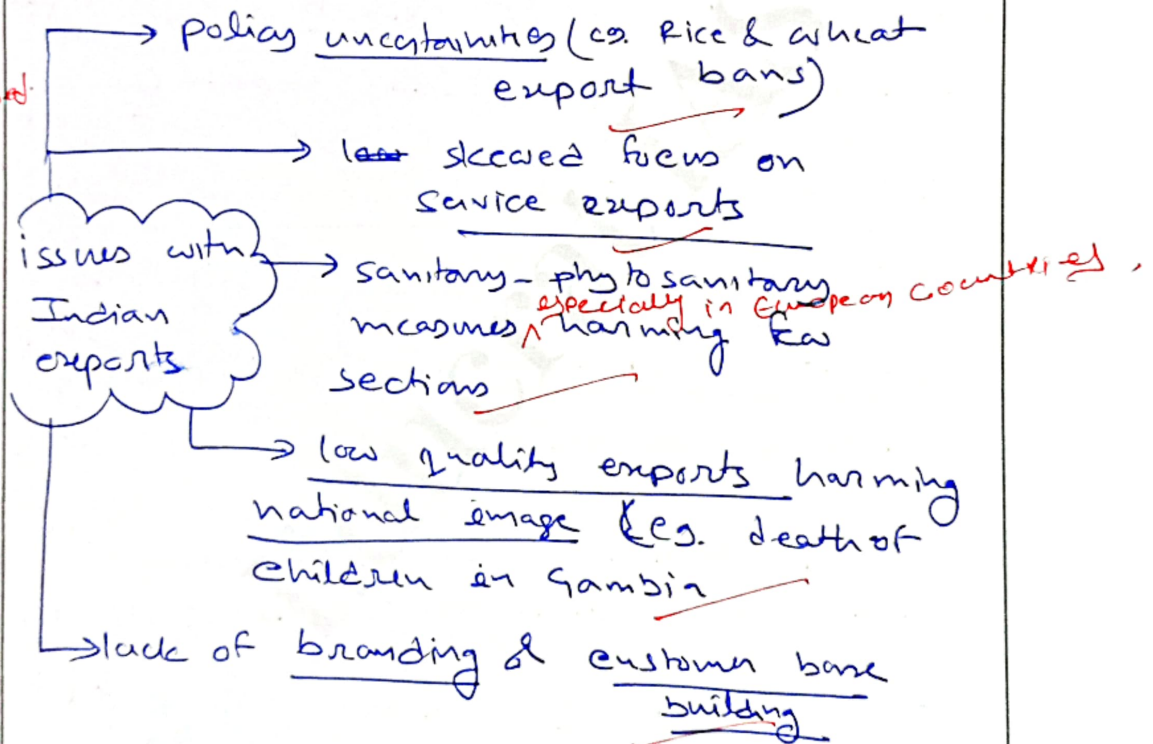 → policy uncertainities (eg. Rice & wheat
export bans)
ed.
→ low skewed focus on
service exports
issues with
Indian
exports
→ sanitary - phyto sanitary
especially in European countries,
measures ^ harming few
sections
→ low quality exports harming
national image (eg. death of
children in Gambia
→ lack of branding & customer base
building